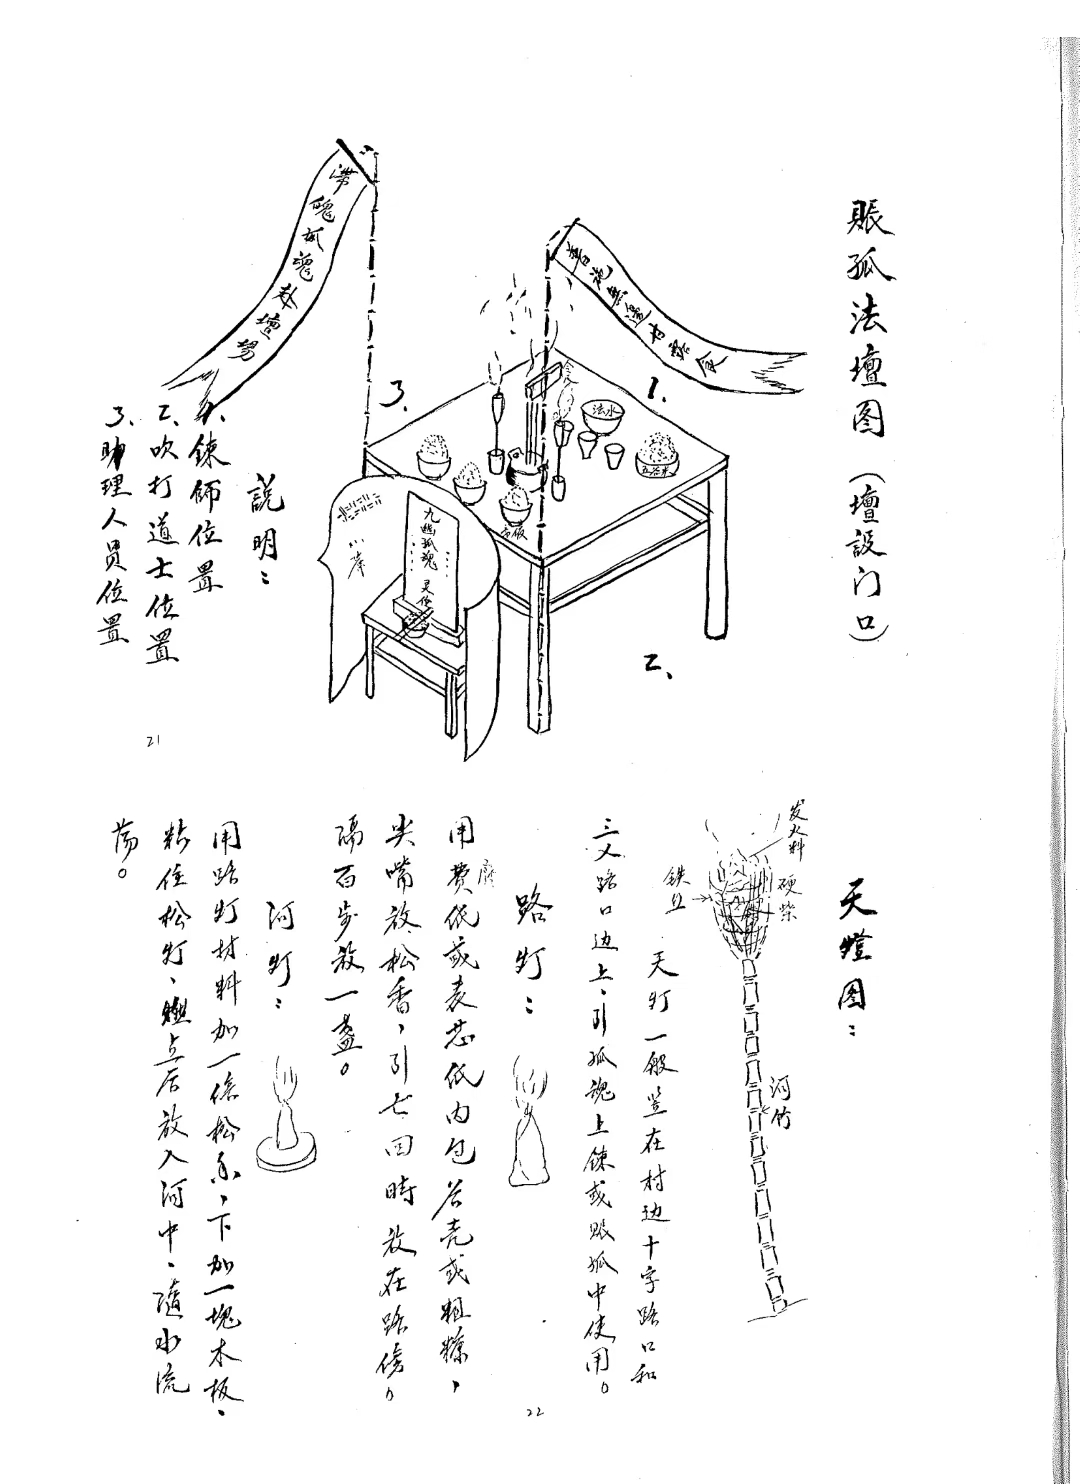 賬孤法壇图（壇設门口）
普施無邊甘露食
滞魄孤魂赴壇
1.
2、
3、
法水
五谷米
斋饭
九幽孤魂
灵位
說明：
1、鍊師位置
2、吹打道士位置
3、助理人员位置
21
天燈图：
发火料
硬柴
铁丝
河竹
天灯一般竖在村边十字路口和
三叉路口边上、引孤魂上鍊或赈孤中使用。
路灯：
用费纸或表芯纸内包谷壳或粗糠，
废
尖嘴放松香，引七回時放在路傍。
隔百步放一盏。
河灯：
用路灯材料加一條松明，下加一塊木板、
粘住松灯、燃点后放入河中、隨水流
荡。
22